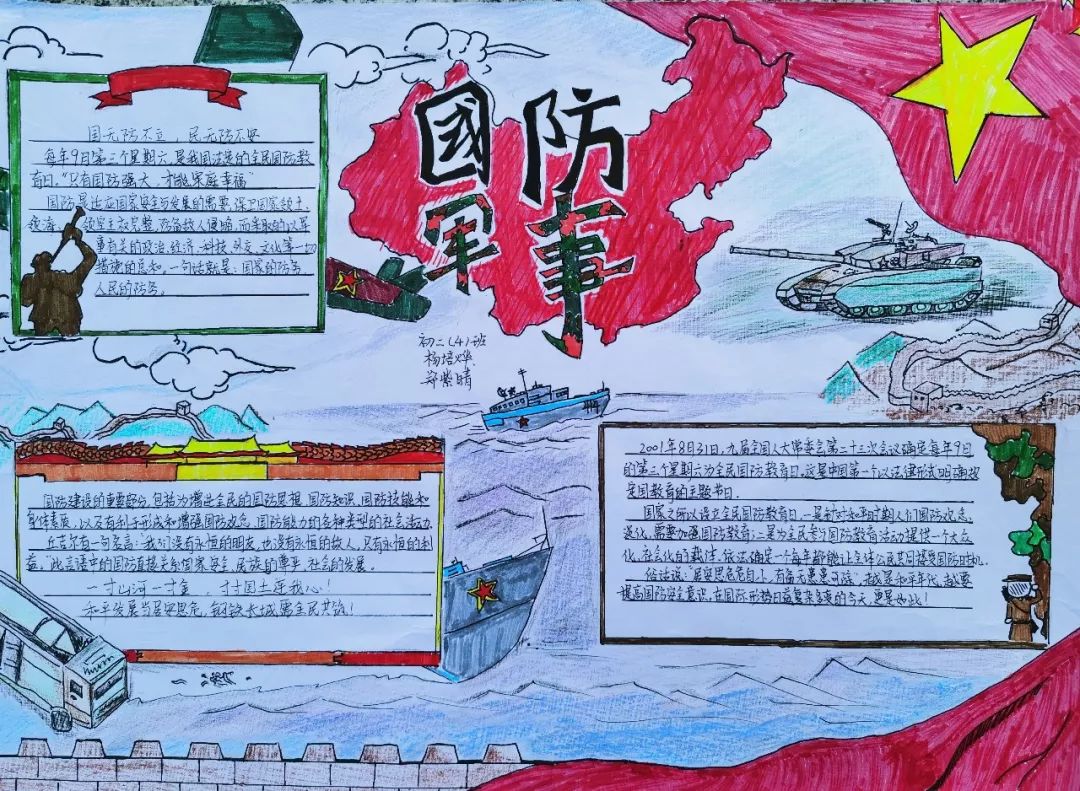 國防
军事
初二(4)班
杨培烨
郑紫晴
国无防不立，民无防不安
每年9月第三个星期六，是我国法定的全民国防教
育日。“只有国防强大，才能家庭幸福”
国防是为国家安全与发展的需要，保卫国家领土、
领海、领空主权完整，防备敌人侵略，而采取的以军
事有关的政治、经济、科技、外交、文化等一切
措施的总和。一句话就是：国家的防务，
人民的防务。
国防建设的重要部分，包括为增进全民的国防思想、国防知识、国防技能和
身体素质，以及有利于形成和增强国防观念、国防能力的各种类型的社会活动。
丘吉尔有一句名言：“我们没有永恒的朋友，也没有永恒的敌人，只有永恒的利
益。”此言语中的国防直接关系国家安全、民族的尊严、社会的发展。
一寸山河一寸金，寸寸国土连我心！
和平发展当居安思危，钢铁长城需全民共铸！
2001年8月31日，九届全国人大常委会第二十三次会议确定每年9月
的第三个星期六为全民国防教育日。这是中国第一个以法律形式明确规
定国教育的主题节日。
国家之所以设立全民国防教育日，一是针对和平时期人们国防观念
淡化，需要加强国防教育；二是为全民参与国防教育活动提供一个大众
化、社会化的载体，依法确定一个每年都能让全体公民共同接受国防
俗话说：“居安思危
提高国防安全意识，在国际形势日益复杂多变的今天，更是如此！